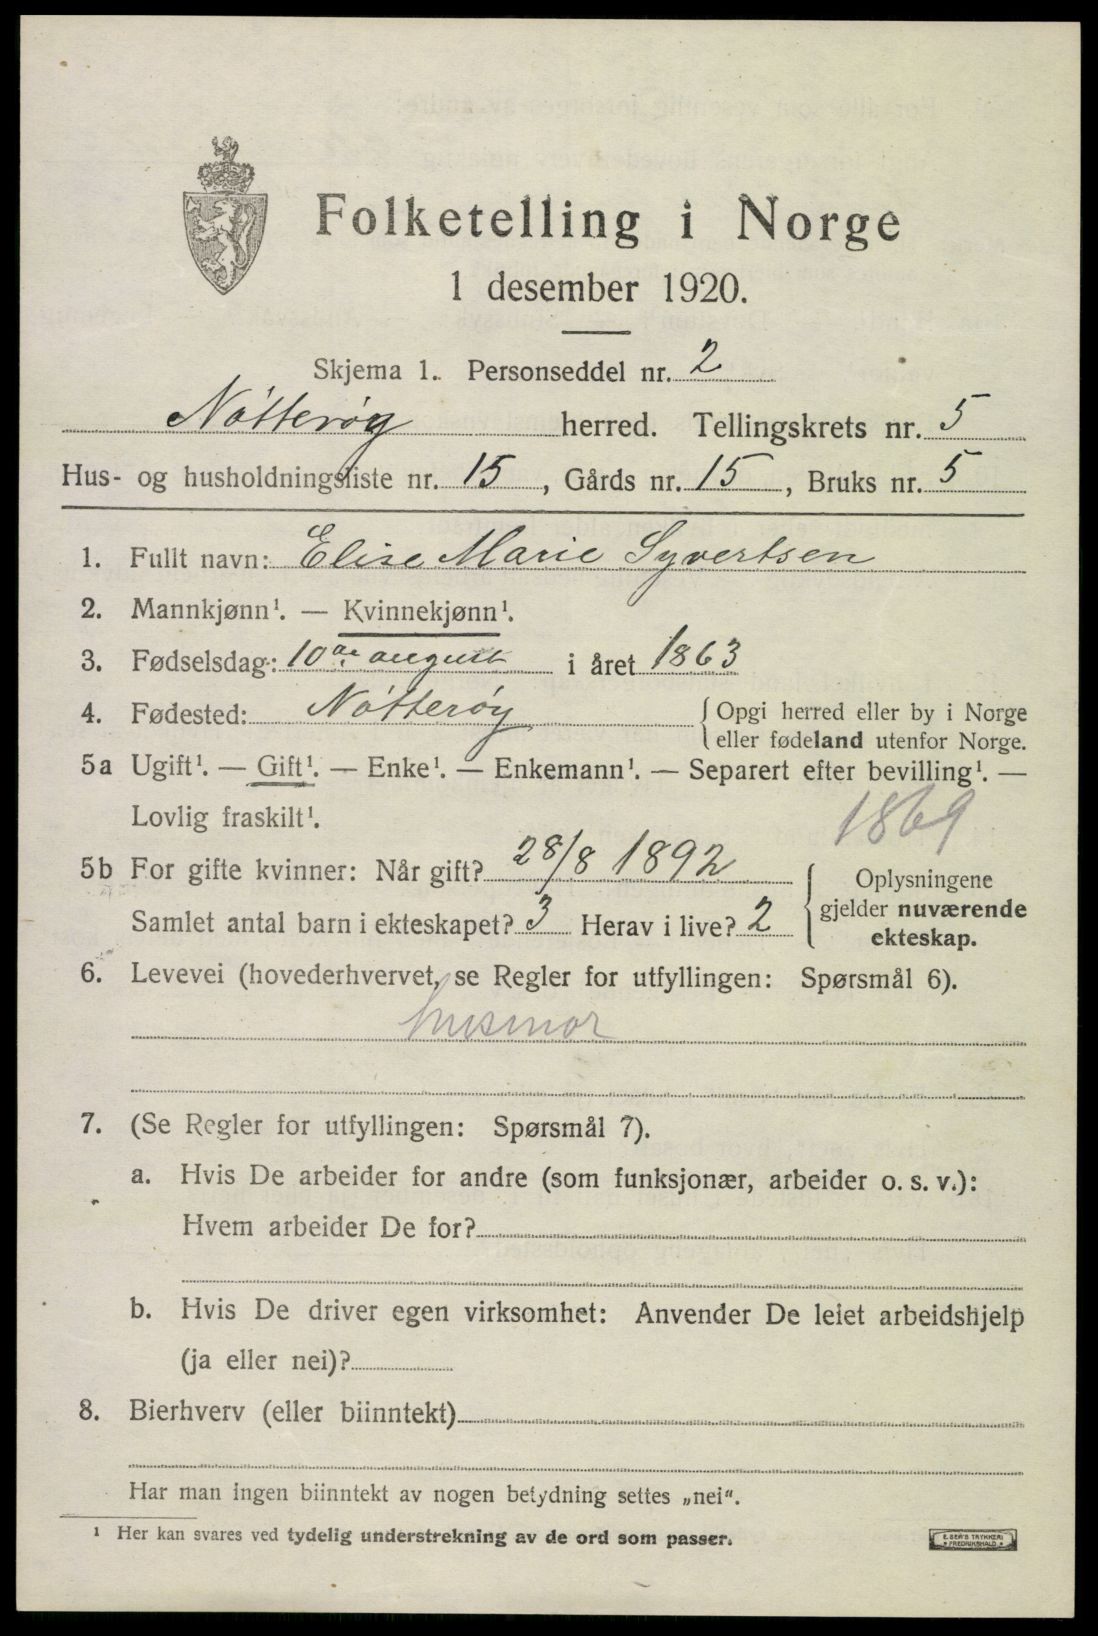 Folketelling i Norge
1 desember 1920.
Skjema 1. Personseddel nr. 2
Nøtterøy herred. Tellingskrets nr. 5
Hus- og husholdningsliste nr. 15, Gårds nr. 15, Bruks nr. 5
1. Fullt navn: Elise Marie Syvertsen
2. Mannkjønn¹. — Kvinnekjønn¹.
3. Fødselsdag: 10de august i året 1863
4. Fødested: Nøtterøy {Opgi herred eller by i Norge
eller fødeland utenfor Norge.
5a Ugift¹. — Gift¹. — Enke¹. — Enkemann¹. — Separert efter bevilling¹. —
Lovlig fraskilt¹. 1869
5b For gifte kvinner: Når gift? 28/8 1892
Samlet antal barn i ekteskapet? 3 Herav i live? 2
{Oplysningene
gjelder nuværende
ekteskap.
6. Levevei (hovederhvervet, se Regler for utfyllingen: Spørsmål 6).
husmor
7. (Se Regler for utfyllingen: Spørsmål 7).
a. Hvis De arbeider for andre (som funksjonær, arbeider o. s. v.):
Hvem arbeider De for?
b. Hvis De driver egen virksomhet: Anvender De leiet arbeidshjelp
(ja eller nei)?
8. Bierhverv (eller biinntekt)
Har man ingen biinntekt av nogen betydning settes „nei“.
¹ Her kan svares ved tydelig understrekning av de ord som passer.
E. SEM'S TRYKKERI
• FREDRIKSHALD •